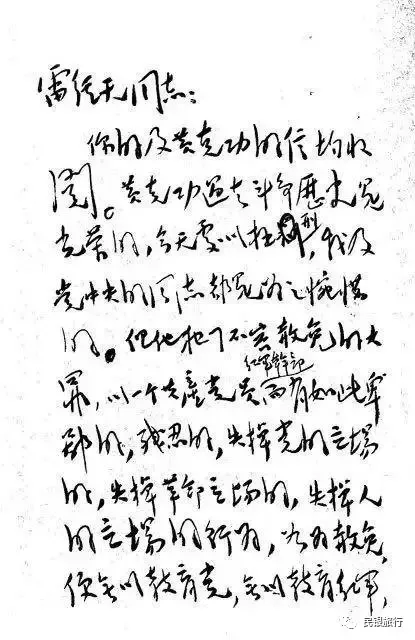 雷经天同志：
你的及黄克功的信均收
阅。黄克功过去斗争歷史是
光荣的，今天处以极刑，我及
党中央的同志都是为之惋惜
的。但他犯了不容赦免的大
罪，以一个共產党员红军幹部而有如此卑
鄙的，残忍的，失掉党的立場
的，失掉革命立场的，失掉人
的立場的行为，如为赦免，
便无以教育党，无以教育红军，
民银旅行